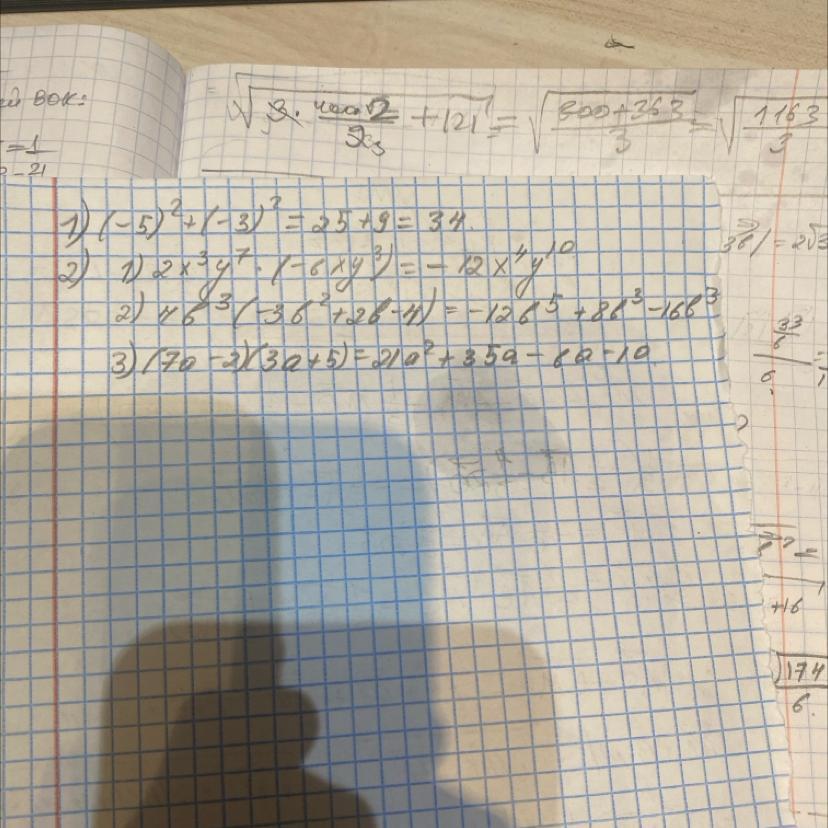 ый вок:
√(9 · 400 2/9x3 + 121) = √((800+363)/3) = √(1163/3)
=1
-21
1) (-5)² + (-3)² = 25 + 9 = 34.
2) 1) 2x³y⁷ · (-6xy³) = -12x⁴y¹⁰
2) 4b³(-3b²+2b-4) = -12b⁵ + 8b³ - 16b³
3) (7a-2)(3a+5) = 21a² + 35a - 6a - 10
+16
174
6.